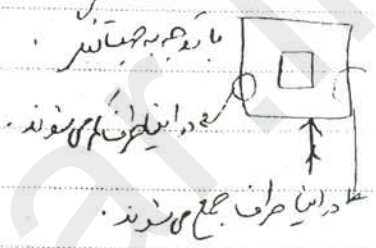 با توجه به
در این طرف کم می‌شوند.
در این طرف جمع می‌شوند.